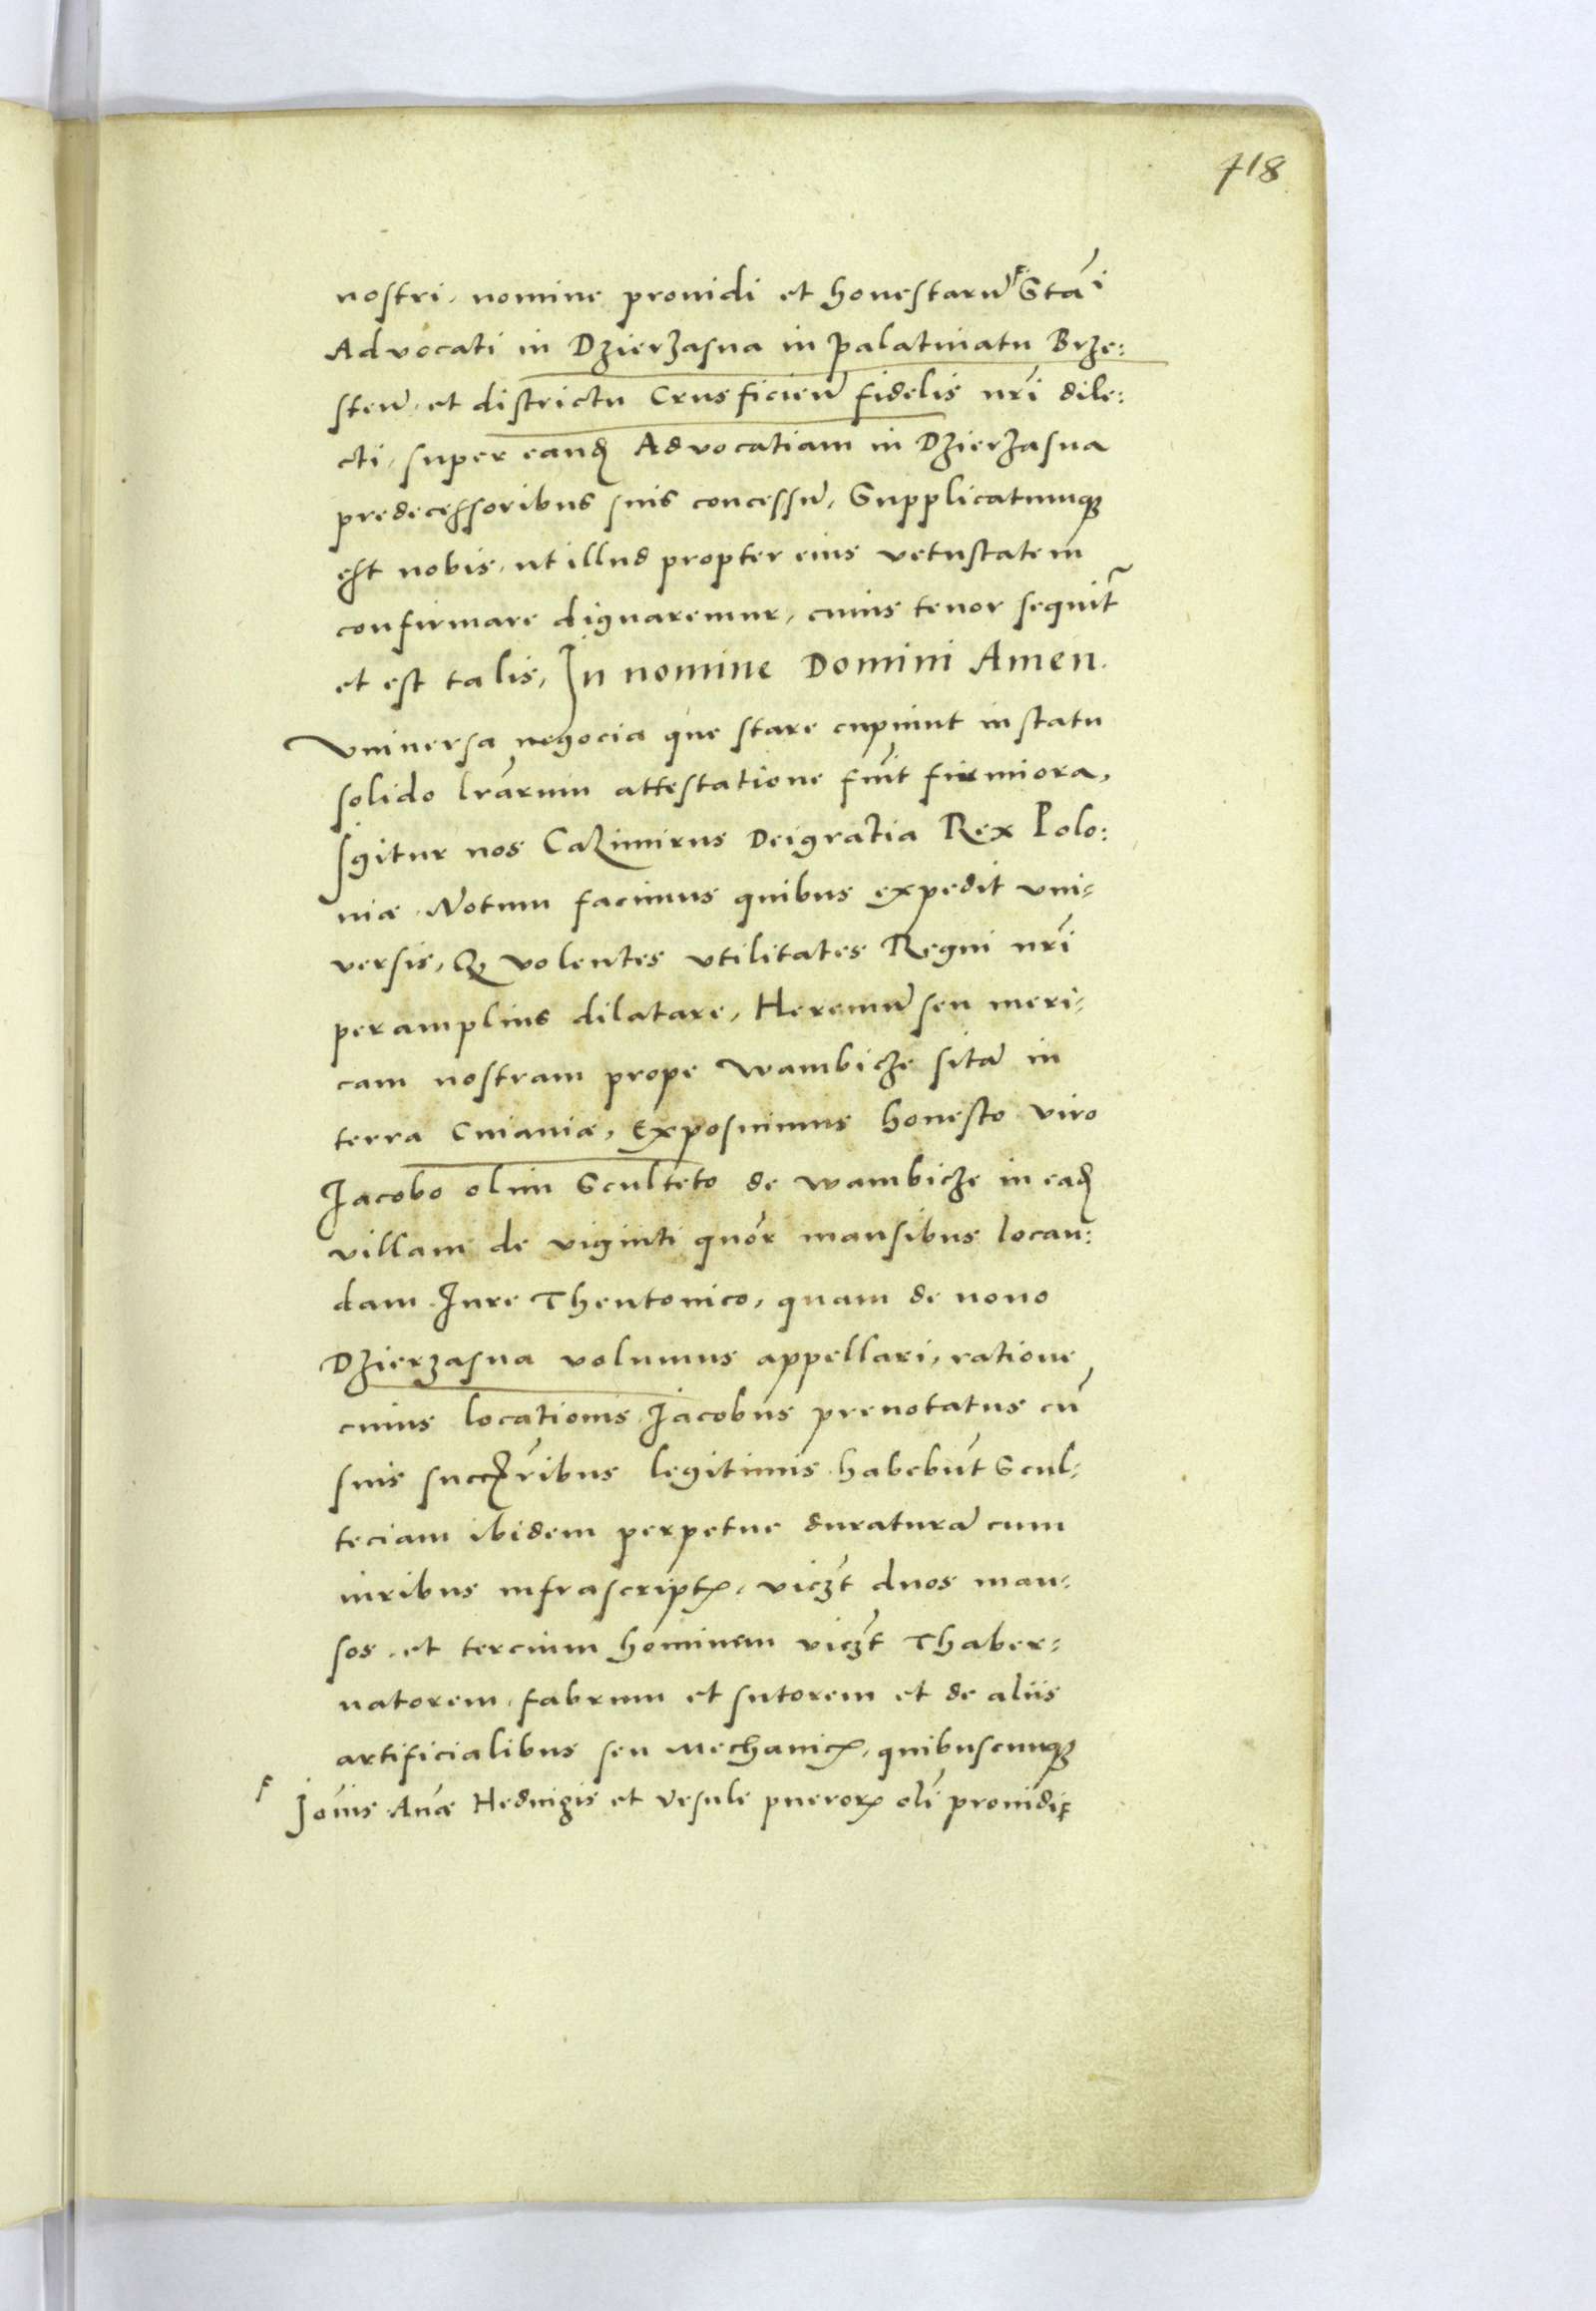 718
nostri, nomine prouidi et honestarũ Stãi
Advocati in Dzierzasna in palatinatu Brze:
steñ. et districtu Crusficieñ fidelis nr̃i dile:
cti, super eandẽ Advocatiam in Dzierzasna
predecessoribus suis concessũ, Supplicatumq₃
est nobis, ut illud propter eius vetustatem
confirmare dignaremur, cuius tenor sequit̃
et est talis, In nomine Domini Amen.
Vniuersa negocia que stare cupiunt in statu
solido lr̃arum attestatione fiũt firmiora,
Igitur nos Cazimirus Dei gratia Rex Polo:
niæ. Notum facimus quibus expedit vni:
versis, Qꝫ volentes vtilitates Regni nr̃i
peramplius dilatare, Heremũ seu meri:
cam nostram prope Wambicze sitã in
terra Cuiauiæ, Exposuimus honesto viro
Jacobo olim Sculteto de Wambicze in eadẽ
villam de viginti quõr mansibus locan:
dam Jure Theutonico, quam de nouo
Dzierzasna volumus appellari, ratione
cuius locationis Jacobus prenotatus cũ
suis succr̃ibus legitimis habebũt Scul:
teciam ibidem perpetue duraturã cum
iuribus infrascriptꝭ, viczt̃ duos man:
sos. et tercium hominem viczt̃ Thaber:
natorem, fabrum et sutorem et de aliis
artificialibus seu Mechanicꝭ, quibuscunq₃
Joãnis Anñæ Heduigis et Vrsule pueroꝝ olĩ prouidi